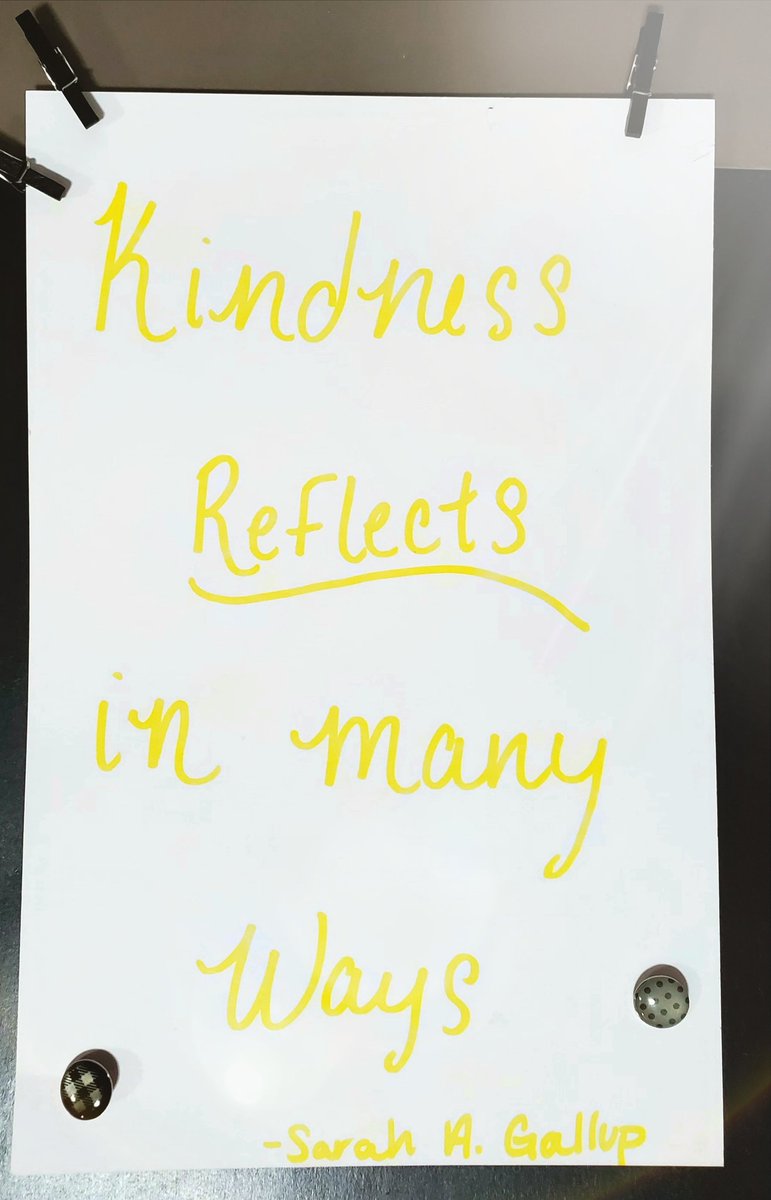 Kindness
Reflects
in many
Ways
-Sarah A. Gallup